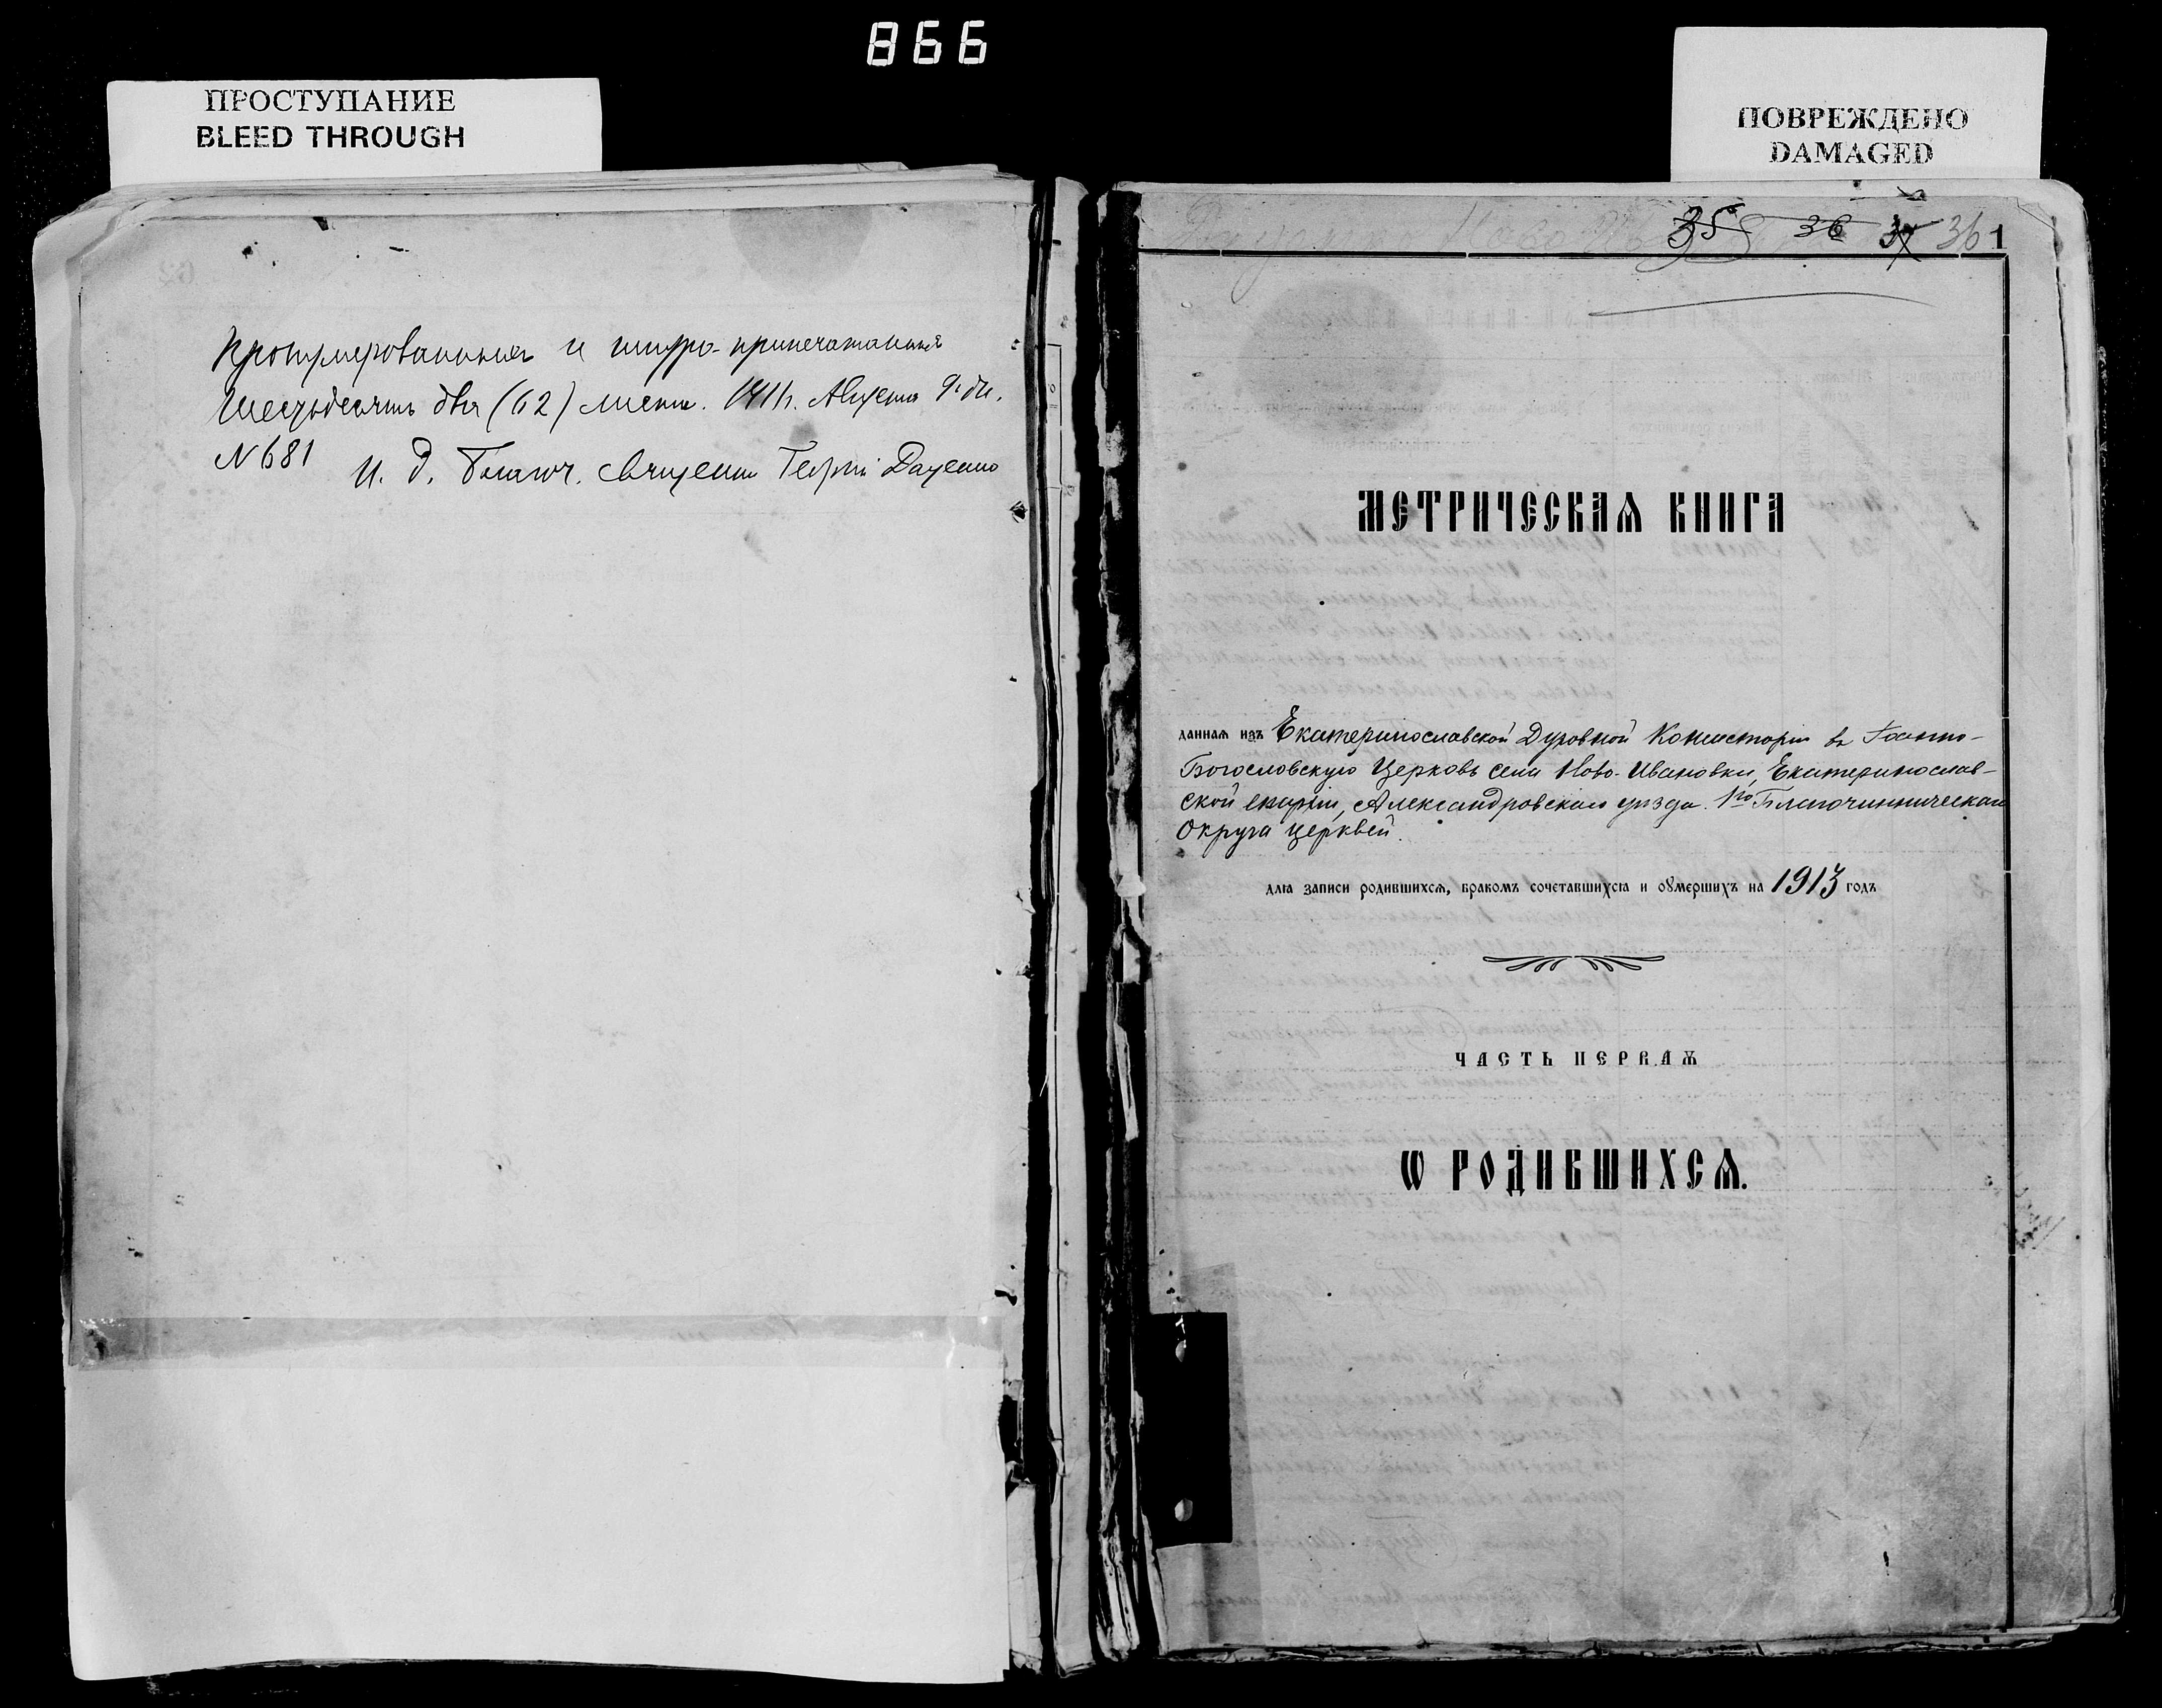 866
ПРОСТУПАНИЕ
BLEED THROUGH
ПОВРЕЖДЕНО
DAMAGED
Пронумерованныхъ и шнуро-припечатанныхъ
шестьдесятъ два (62) листа. 1911г. Августа 9 дн.
N 681 И. д. Благоч. Священ. Георгій Даценко
35 36 37 36 1
МЕТРИЧЕСКАѦ КНИГА
даннаѧ изъ Екатеринославской Духовной Консисторіи въ Іоанно-
Богословскую Церковь села Ново-Ивановки, Екатеринослав-
ской епархіи, Александровскаго уѣзда 1го Благочинническаго
Округа церквей.
длѧ записи родившихсѧ, бракомъ сочетавшихсѧ и оумершихъ на 1913 годъ
ЧАСТЬ ПЕРВАѦ
Ѡ РОДИВШИХСѦ.